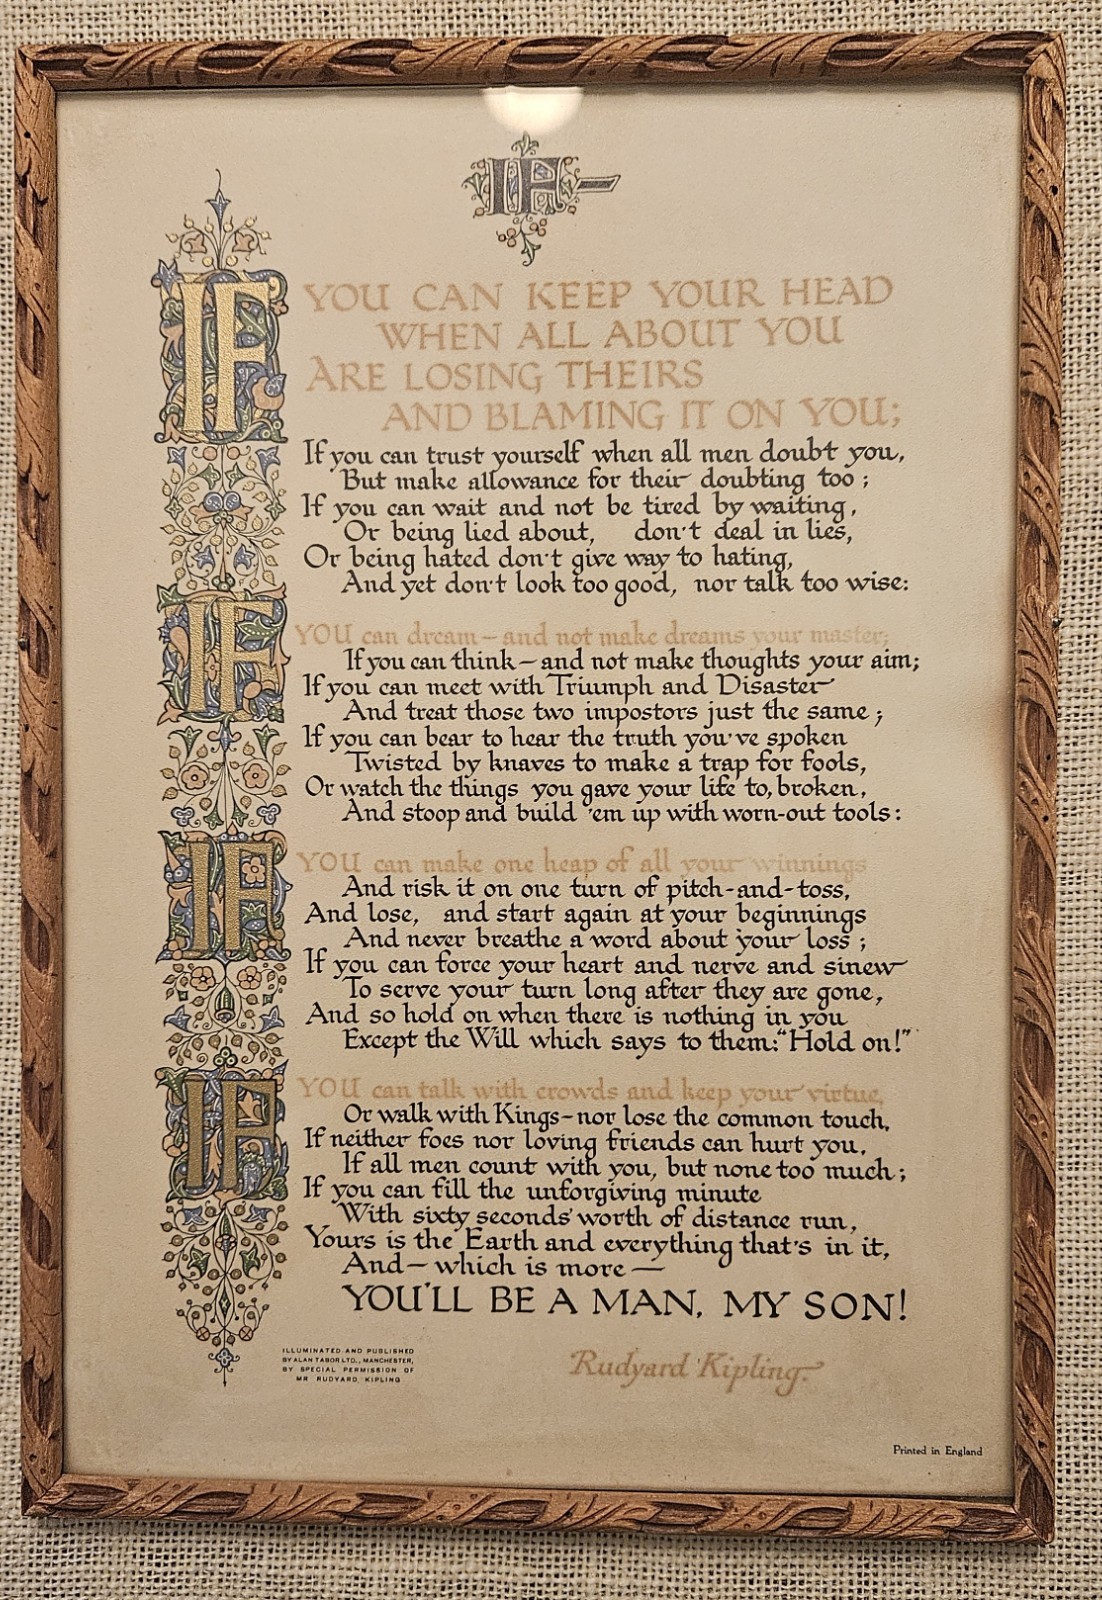 IF-
IF YOU CAN KEEP YOUR HEAD
WHEN ALL ABOUT YOU
ARE LOSING THEIRS
AND BLAMING IT ON YOU;
If you can trust yourself when all men doubt you,
But make allowance for their doubting too;
If you can wait and not be tired by waiting,
Or being lied about, don't deal in lies,
Or being hated don't give way to hating,
And yet don't look too good, nor talk too wise:
IF YOU can dream—and not make dreams your master;
If you can think—and not make thoughts your aim;
If you can meet with Triumph and Disaster
And treat those two impostors just the same;
If you can bear to hear the truth you've spoken
Twisted by knaves to make a trap for fools,
Or watch the things you gave your life to, broken,
And stoop and build 'em up with worn-out tools:
IF YOU can make one heap of all your winnings
And risk it on one turn of pitch-and-toss,
And lose, and start again at your beginnings
And never breathe a word about your loss;
If you can force your heart and nerve and sinew
To serve your turn long after they are gone,
And so hold on when there is nothing in you
Except the Will which says to them: "Hold on!"
IF YOU can talk with crowds and keep your virtue,
Or walk with Kings—nor lose the common touch,
If neither foes nor loving friends can hurt you,
If all men count with you, but none too much;
If you can fill the unforgiving minute
With sixty seconds' worth of distance run,
Yours is the Earth and everything that's in it,
And—which is more—
YOU'LL BE A MAN, MY SON!
Rudyard Kipling.
ILLUMINATED AND PUBLISHED
BY ALAN TABOR LTD., MANCHESTER,
BY SPECIAL PERMISSION OF
MR RUDYARD, KIPLING
Printed in England